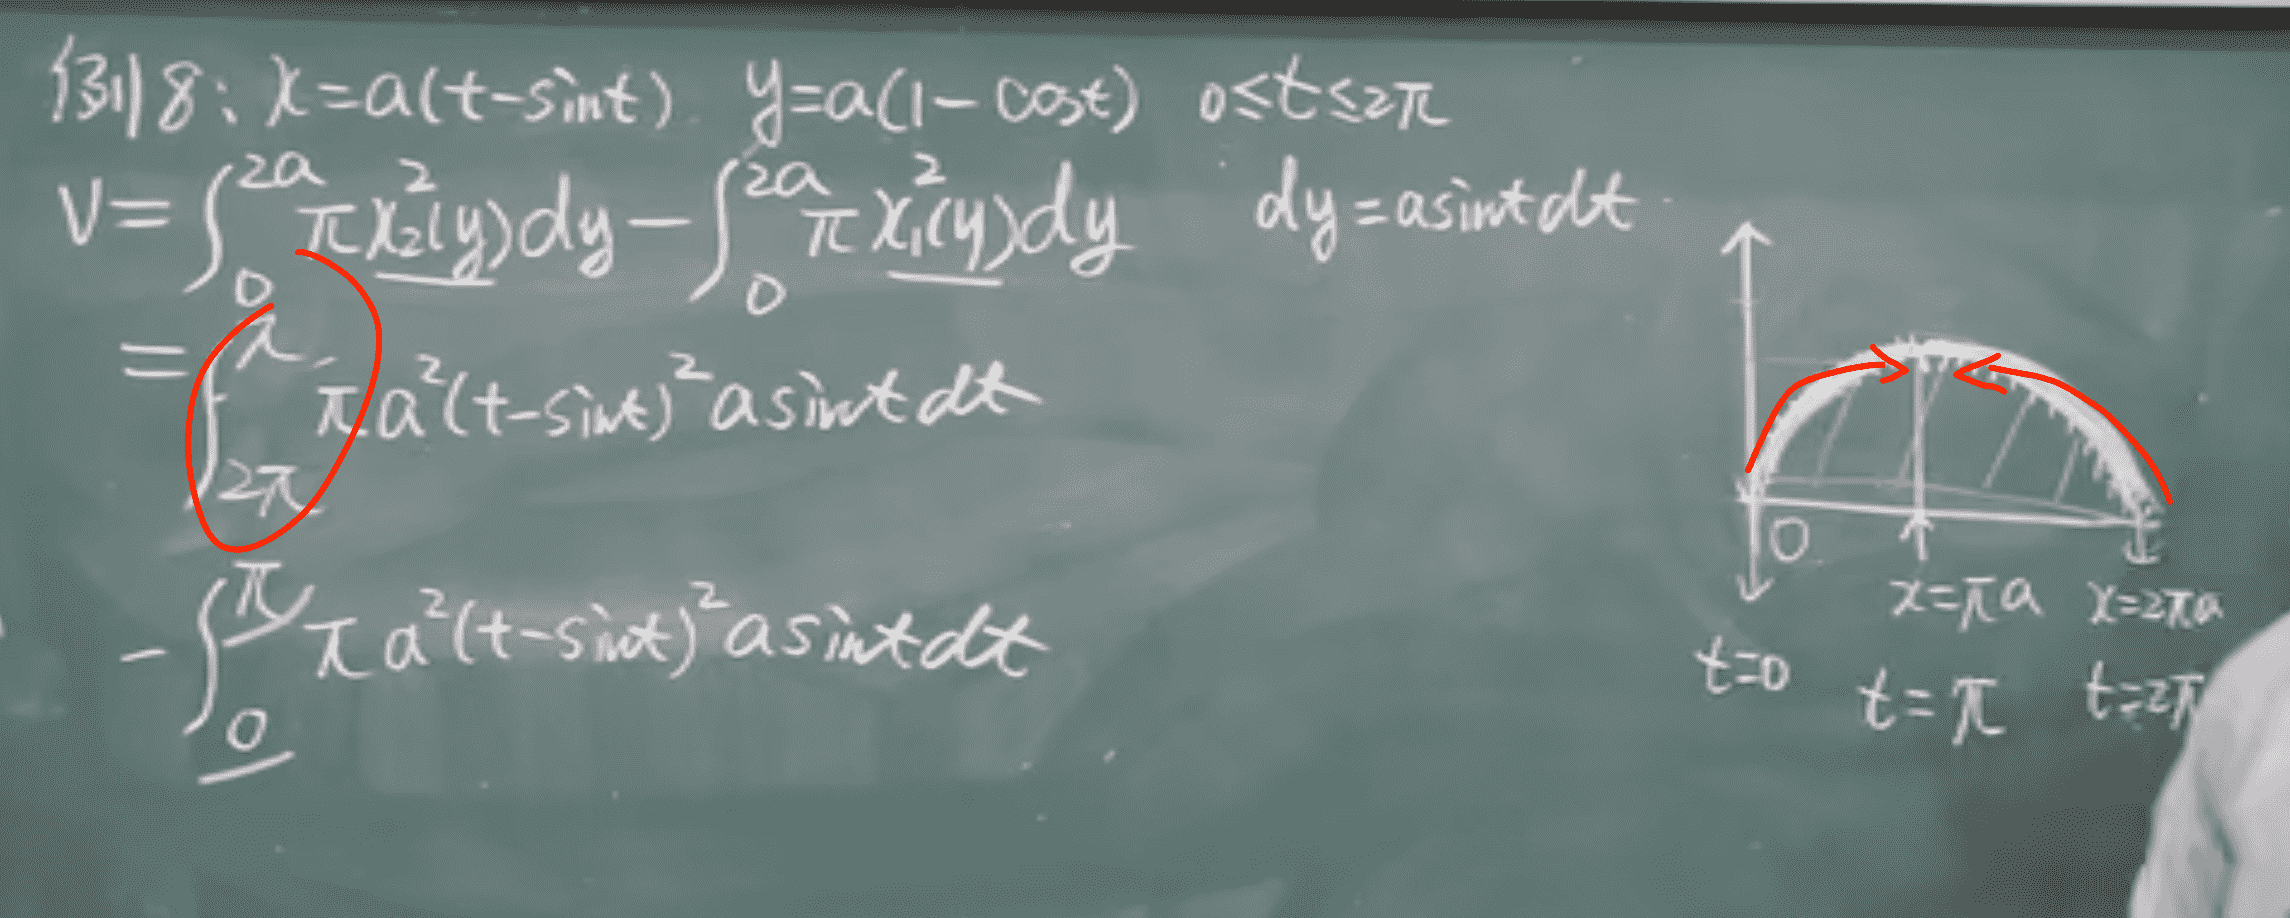 例8: x=a(t-sint) y=a(1-cost) 0≤t≤2π
V=∫₀^{2a} πx₂²(y)dy-∫₀^{2a} πx₁²(y)dy dy=asintdt
=∫_{2π}^{π} πa²(t-sint)²asintdt
-∫₀^{π} πa²(t-sint)²asintdt
0
x=πa x=2πa
t=0 t=π t=2π